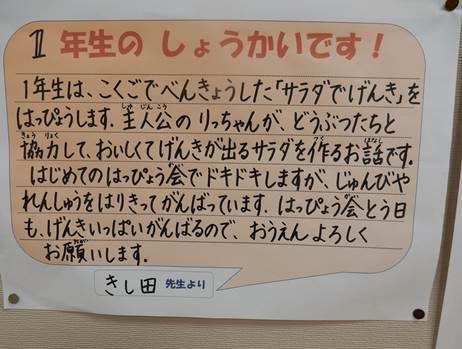 1年生の しょうかいです！
1年生は、こくごでべんきょうした「サラダでげんき」を
はっぴょうします。主人公のりっちゃんが、どうぶつたちと
協力して、おいしくてげんきが出るサラダを作るお話です。
はじめてのはっぴょう会でドキドキしますが、じゅんびや
れんしゅうをはりきってがんばっています。はっぴょう会とう日
も、げんきいっぱいがんばるので、おうえんよろしく
お願いします。
きし田 先生より